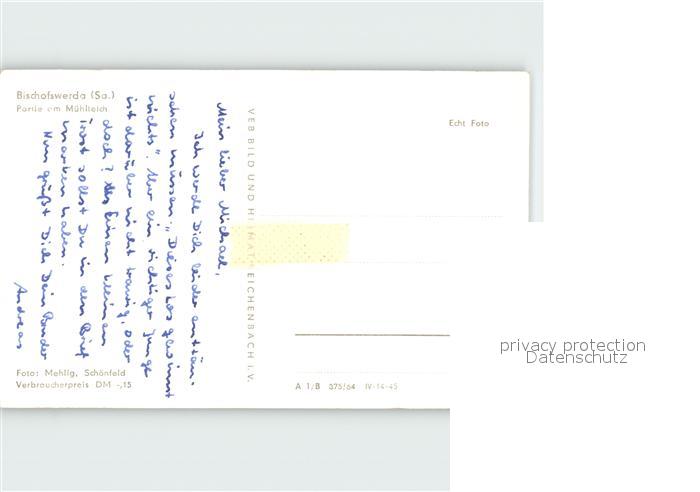 Bischofswerda (Sa.)
Partie am Mühlteich
Mein lieber Michael,
Ich werde Dich leider enttäu-
schen müssen. „Dieses Los gewinnt
nichts". Aber ein richtiger Junge
ist darüber nicht traurig, oder
doch? Als kleinen
Trost sollst Du in dem Brief
marken haben.
Nun grüßt Dich Dein Bruder
Andreas
Foto: Mehlig, Schönfeld
Verbraucherpreis DM -,15
VEB BILD UND HEIMAT REICHENBACH I. V.
Echt Foto
A 1/B 375/64 IV-14-45
privacy protection
Datenschutz